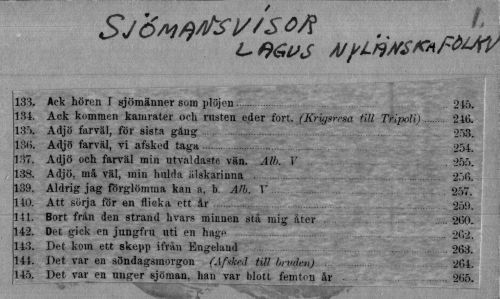 SJÖMANSVISOR 1.
LAGUS NYLÄNSKA FOLKV
133. Ack hören I sjömänner som plöjen 245.
134. Ack kommen kamrater och rusten eder fort. (Krigsresa till Tripoli) 246.
135. Adjö farväl, för sista gång 253.
136. Adjö farväl, vi afsked taga 254.
137. Adjö och farväl min utvaldaste vän. Alb. V 255.
138. Adjö, må väl, min hulda älskarinna 256.
139. Aldrig jag förglömma kan a, b. Alb. V 257.
140. Att sörja för en flicka ett år 259.
141. Bort från den strand hvars minnen stå mig åter 260.
142. Det gick en jungfru uti en hage 262.
143. Det kom ett skepp ifrån Engeland 263.
144. Det var en söndagsmorgon (Afsked till bruden) 264.
145. Det var en unger sjöman, han var blott femton år 265.